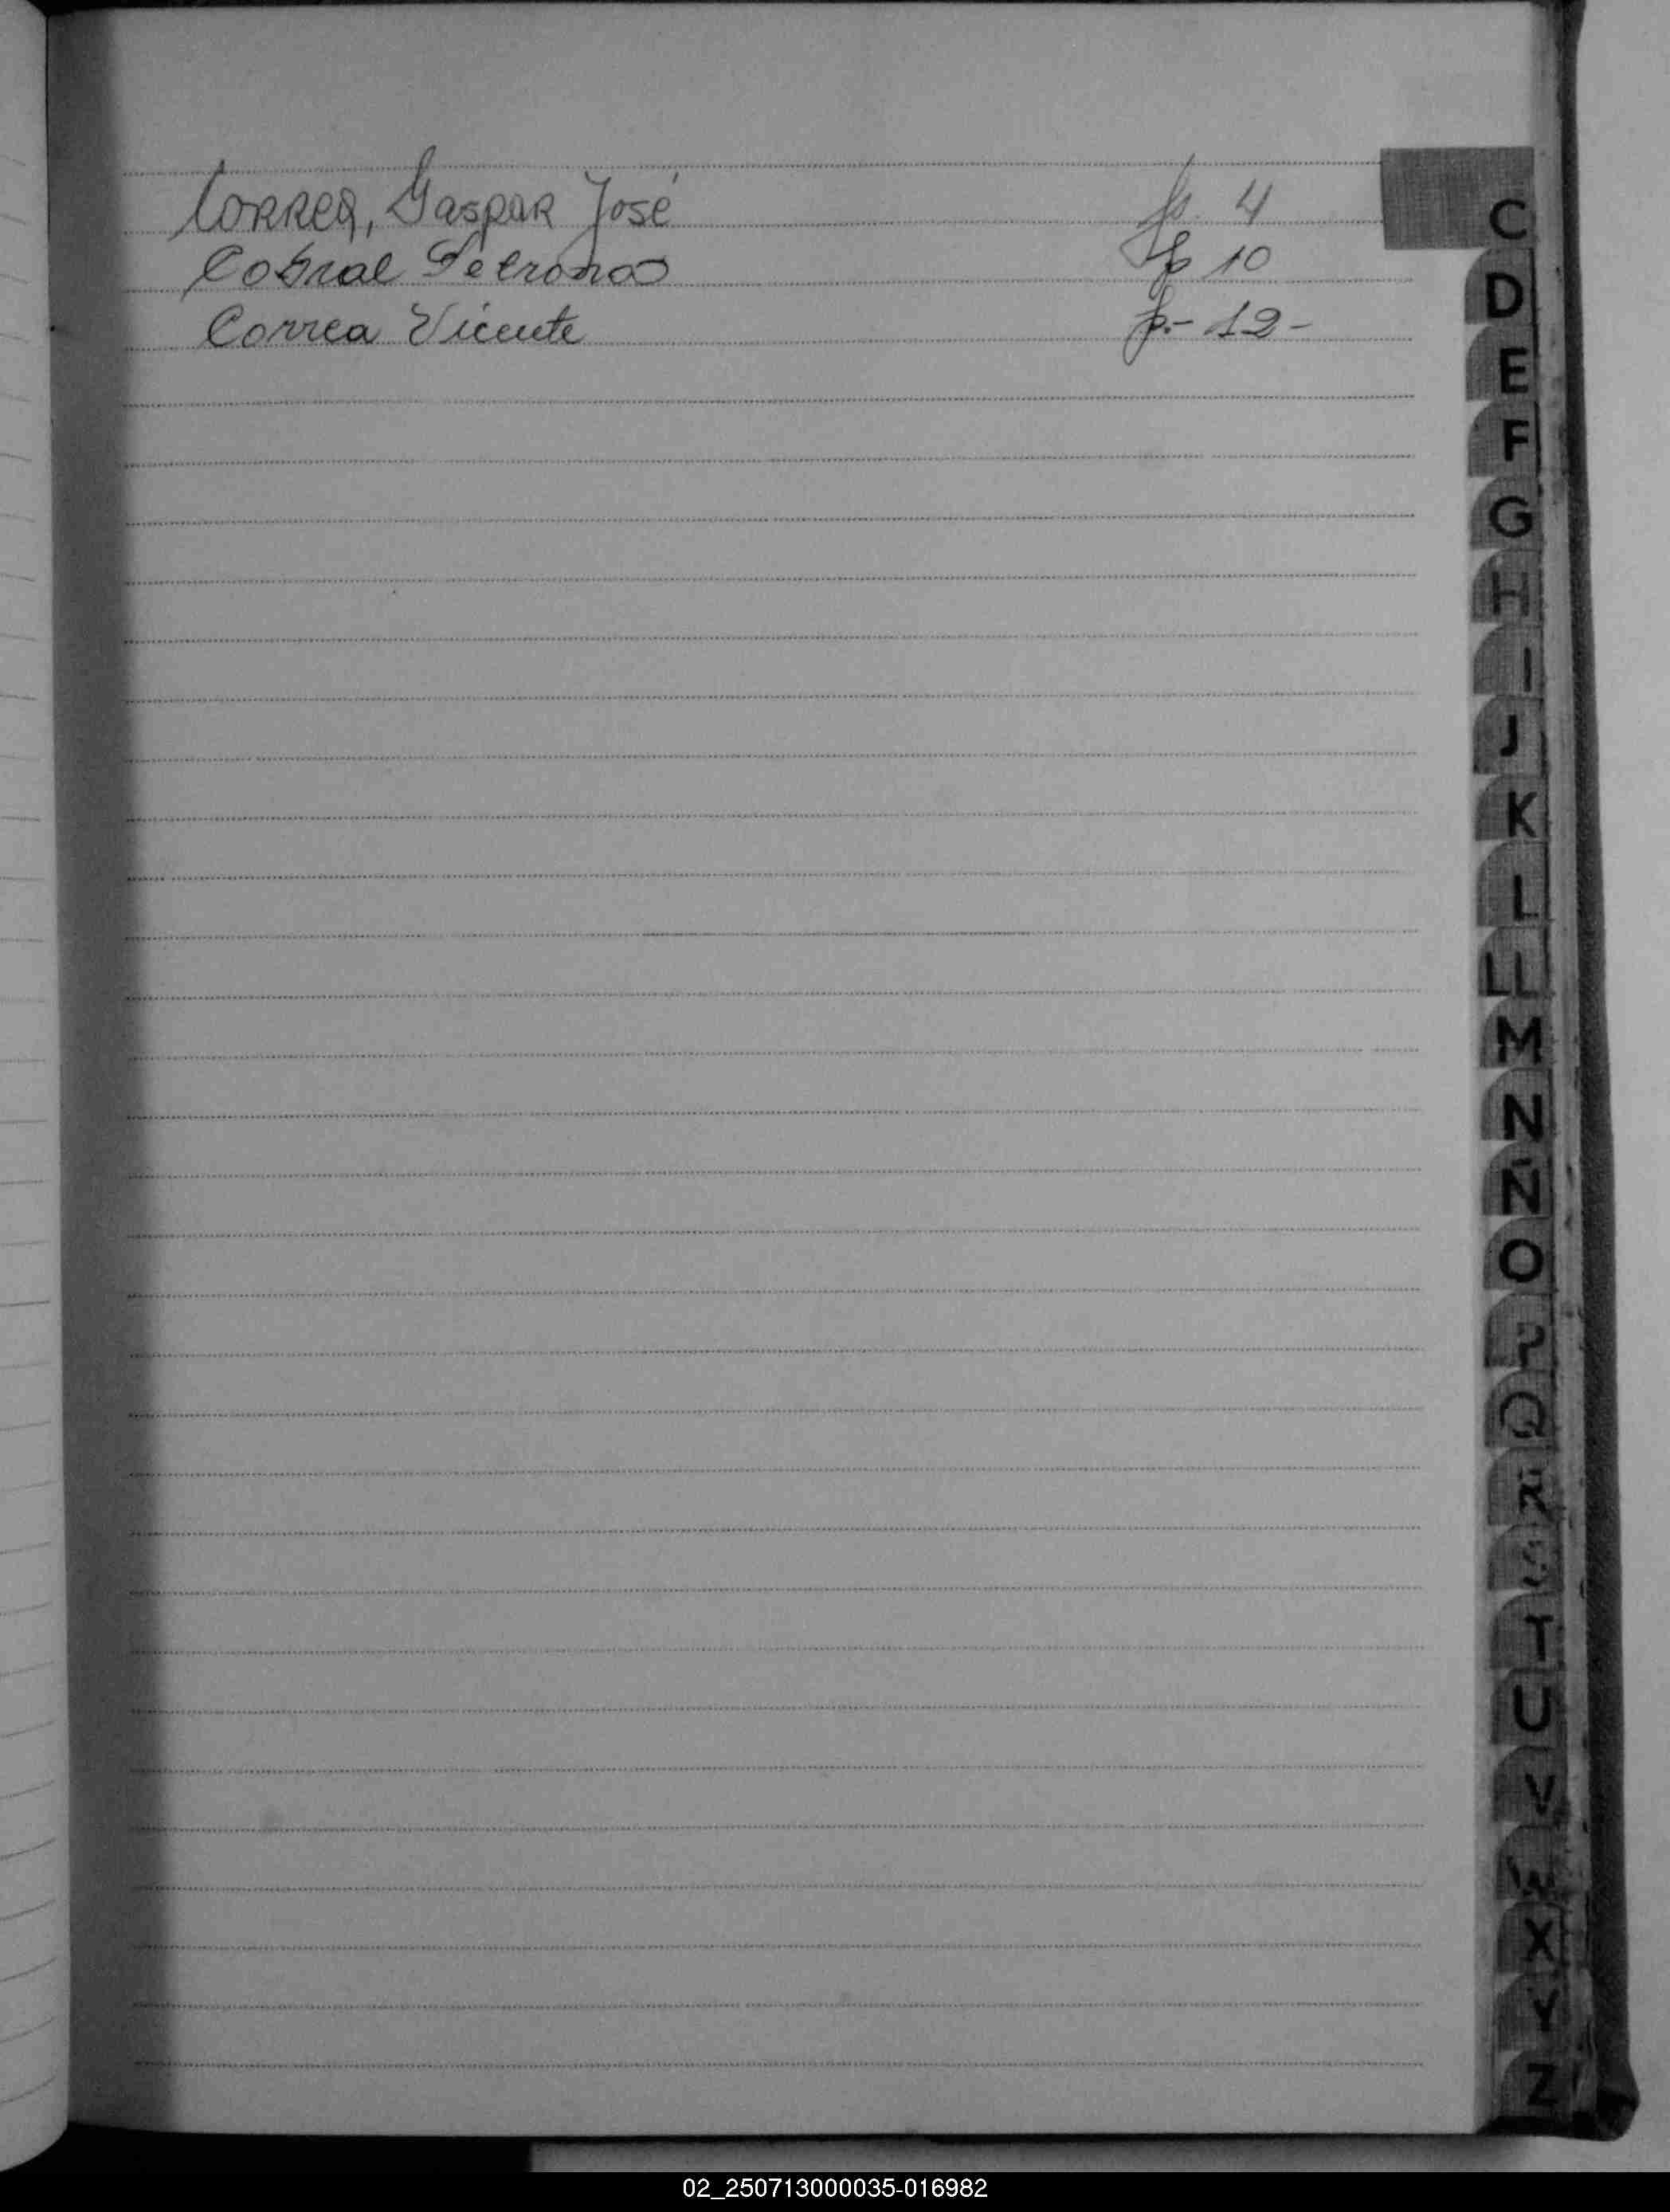 Correa, Gaspar José fs. 4
Cobral Petrona fs 10
Correa Vicente f.- 12-
C
D
E
F
G
H
I
J
K
L
LL
M
N
Ñ
O
P
Q
R
S
T
U
V
W
X
Y
Z
02_250713000035-016982